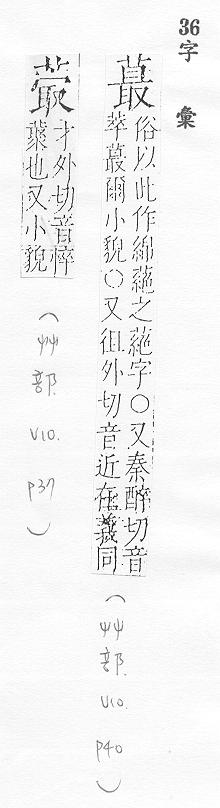 36字 彙
蕞
俗以此作綿蕝之蕝字○又秦醉切音
萃蕞爾小貌○又徂外切音近在義同
(艸部 V10. P40)
才外切音悴
藂也又小貌
(艸部 V10. P37)